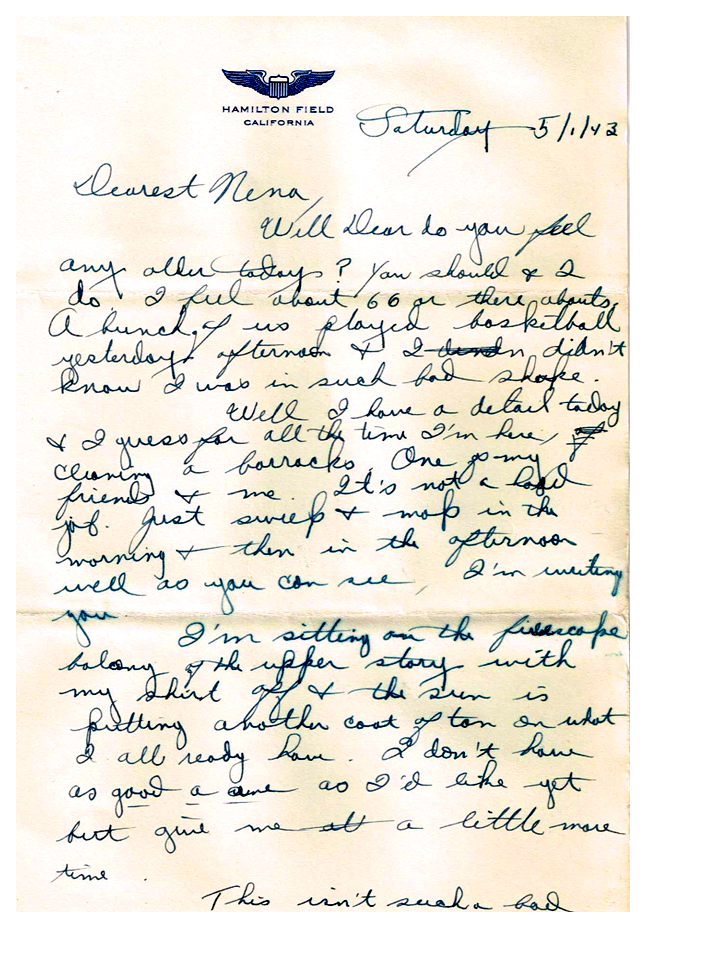 HAMILTON FIELD
CALIFORNIA
Saturday 5/1/43
Dearest Nena,
Well Dear do you feel
any older today? You should & I
do I feel about 60 or there abouts.
A bunch of us played basketball
yesterday afternoon & I didn't
know I was in such bad shape.
Well I have a detail today
& I guess for all the time I'm here,
cleaning a barracks. One of my
friends & me. It's not a hard
job. Just sweep & mop in the
morning & then in the afternoon
well as you can see, I'm writing
you.
I'm sitting on the firescape
balcony of the upper story with
my shirt off & the sun is
putting another coat of tan on what
I all ready have. I don't have
as good a one as I'd like yet
but give me a little more
time.
This isn't such a bad